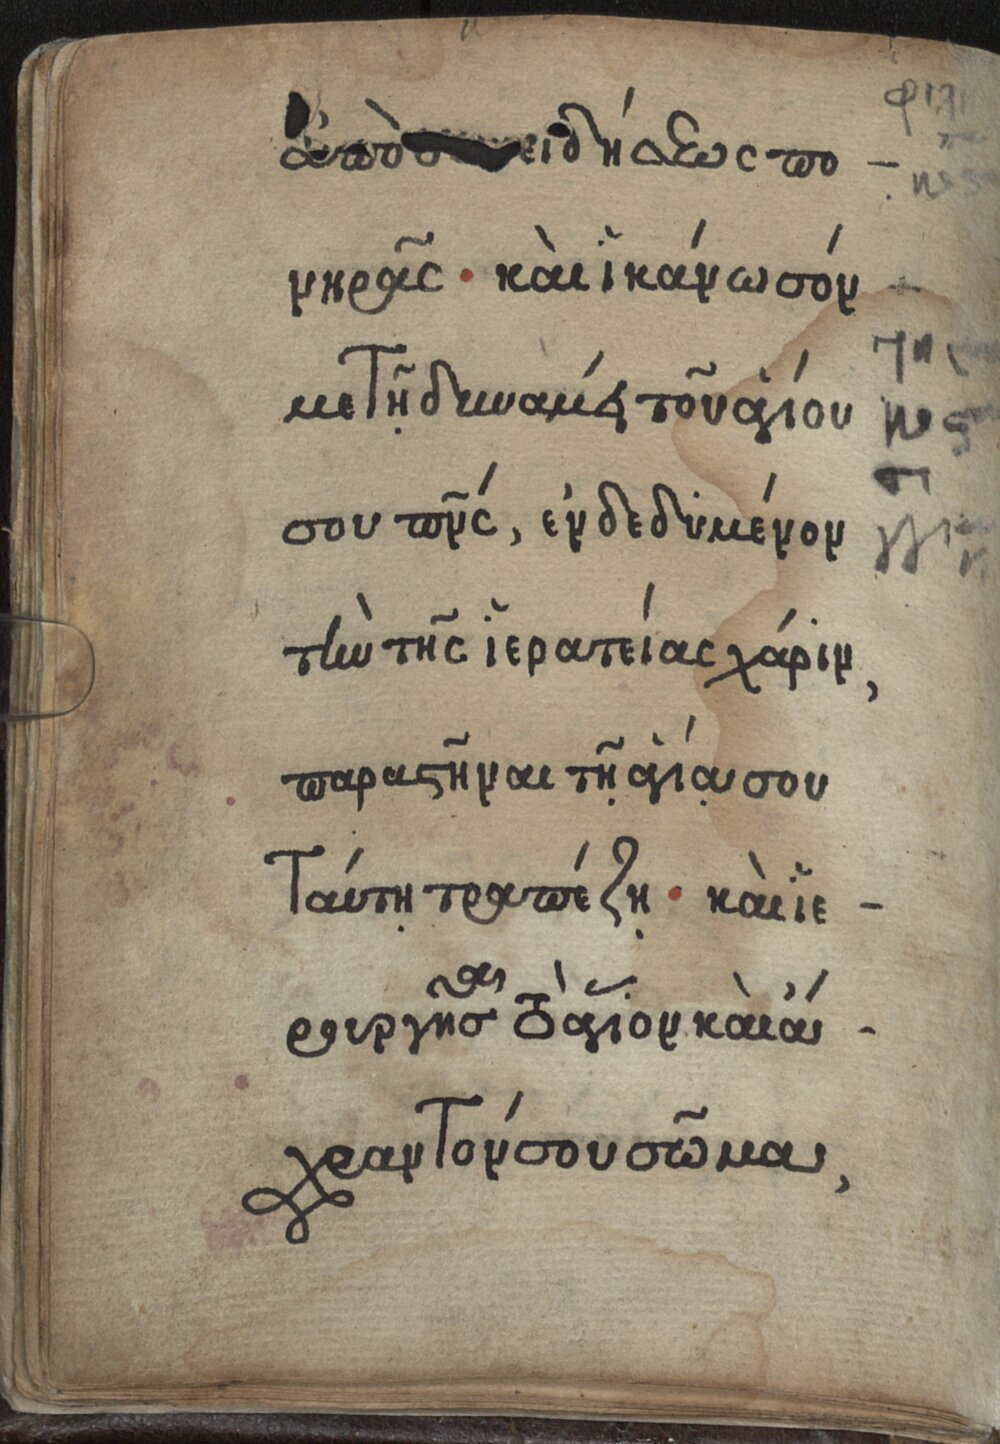 ἀπὸ συνειδήσεως πο -
νηρᾶς · καὶ ἱκάνωσόν -
με τῇ δυνάμει τοῦ ἁγίου
σου πνς, ἐνδεδυμένον
τὴν τῆς ἱερατείας χάριν,
παραστῆναι τῇ ἁγίᾳ σου
ταύτῃ τραπέζῃ · καὶ ἱε -
ρουργῆσαι τὸ ἅγιον καὶ ἄ -
χραντόν σου σῶμα,